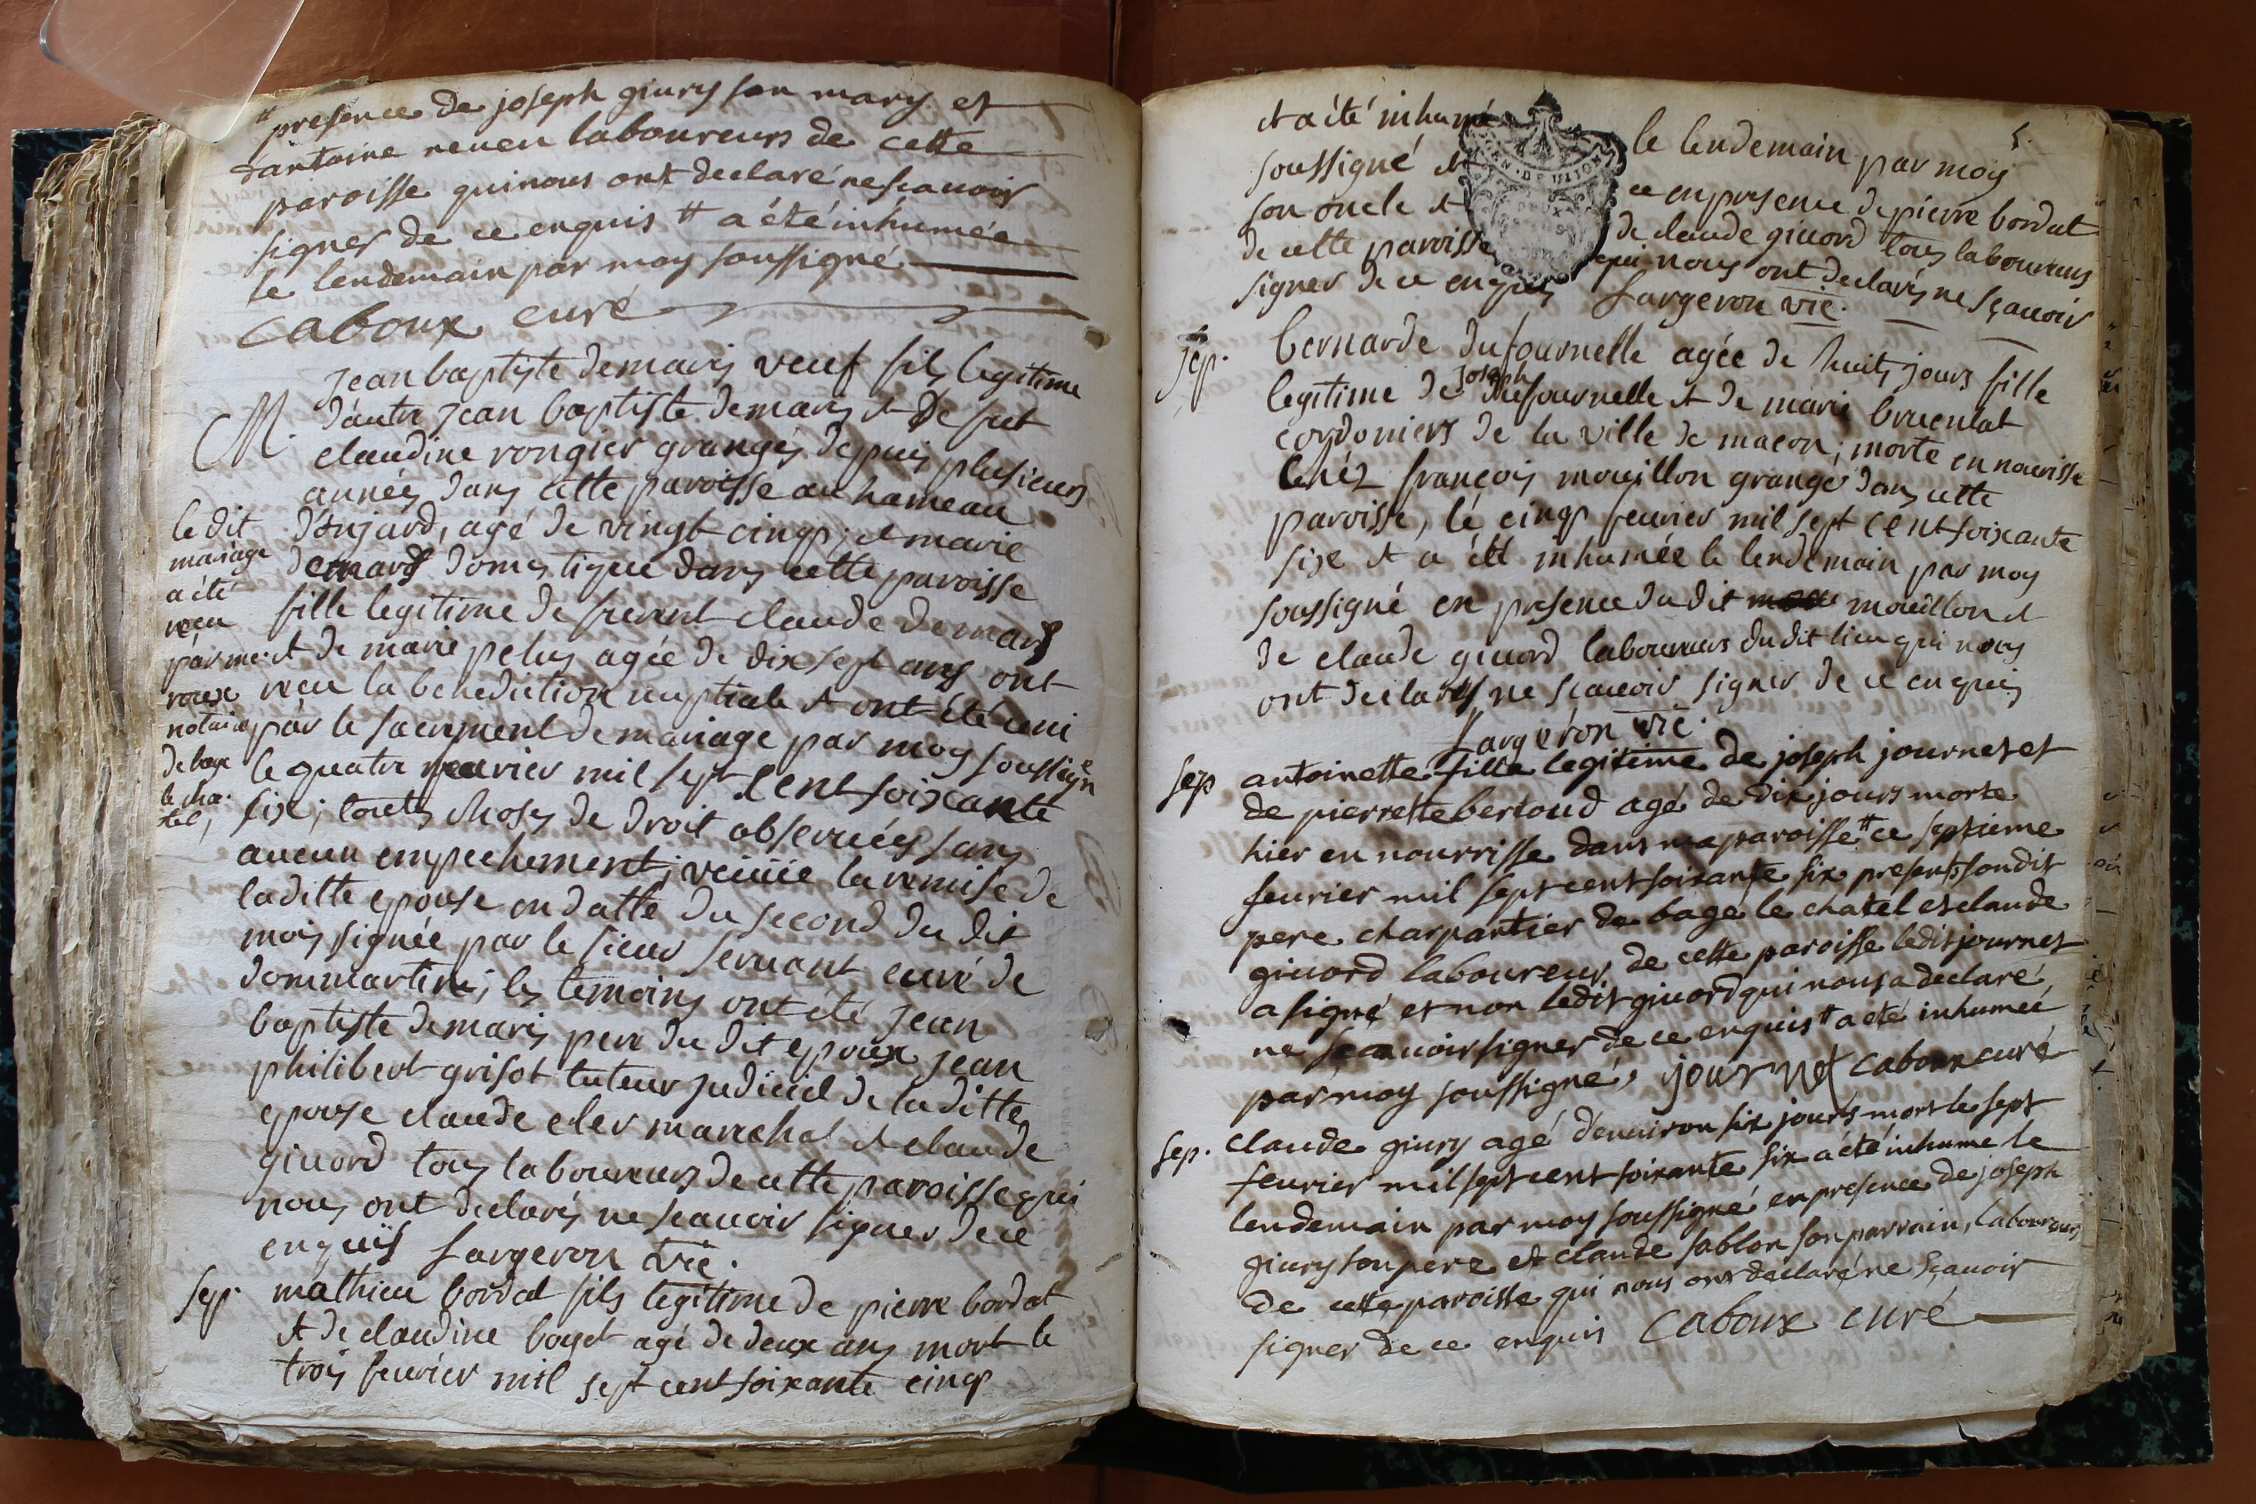 # presence de joseph giury son mary et
d'antoine neveu laboureurs de cette
paroisse qui nous ont declaré ne scavoir
signer de ce enquis # a été inhumée
le lendemain par moy soussigné
Caboux curé
Jean baptiste demaris veuf fils legitime
M. d'autre jean baptiste demaris et de fut
claudine rongier granges depuis plusieurs
années dans cette paroisse au hameau
d'Anjard, agé de vingt cinq; et marie
demard domestique dans cette paroisse
fille legitime de furent claude demard
et de marie pelus agée de dix sept ans ont
receu la benediction nuptiale et ont été uni
par le sacrement de mariage par moy soussigné
le quatre fevrier mil sept cent soixante
six; toutes choses de droit observées sans
aucun empechement; veüüe la remise de
laditte epouse en datte du second du dit
mois signée par le sieur servant curé de
dommartin; les temoins ont été jean
baptiste demaris pere du dit epoux jean
philibert grisot tuteur judiciel de la ditte
epouse claude cler marechal et claude
givord tous laboureurs de cette paroisse qui
nous ont declarés ne scavoir signer de ce
enquis fargeron vic.
le dit
mariage
a été
receu
par me
roux
notaire
de bage
le cha-
tel,
sep. mathieu bordat fils legitime de pierre bordat
et de claudine boyet agé de deux ans mort le
trois fevrier mil sept cent soixante cinq
5.
et a été inhumé le lendemain par moy
soussigné et ce en presence de pierre bordat
son oncle et de claude givord tous laboureurs
de cette paroisse qui nous ont declarés ne sçavoir
signer de ce enquis fargeron vic.
sep. bernarde dufournelle agée de huits jours fille
legitime de joseph dufournelle et de marie bruenlat
cordoniers de la ville de macon; morte en nourisse
chéz françois mouillon grangé dans cette
paroisse, le cinq fevrier mil sept cent soixante
six et a été inhumée le lendemain par moy
soussigné en presence du dit mouillon et
de claude givord laboureurs du dit lieu qui nous
ont declarés ne scavoir signer de ce enquis
fargeron vic.
sep antoinette fille legitime de joseph journet et
de pierrette bertoud agé de dix jours morte
hier en nourrisse dans ma paroisse # ce septieme
fevrier mil sept cent soixante six presents son dit
pere charpantier de bagé le chatel et claude
givord laboureur de cette paroisse ledit journet
a signé et non ledit givord qui nous a declaré
ne scavoir signer de ce enquis # a été inhumeé
par moy soussigné, journet caboux curé
sep. claude giury agé d'environ six jours mort le sept
fevrier mil sept cent soixante six a été inhume le
lendemain par moy soussigné en presence de joseph
giury son pere et claude sablon son parrain, laboureurs
de cette paroisse qui nous ont declaré ne sçavoir
signer de ce enquis Caboux curé